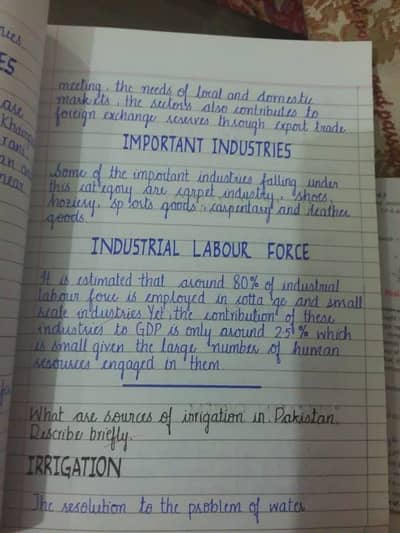 meeting, the needs of local and domestic
markets, the sectors also contributes to
foreign exchange reserves through export trade
IMPORTANT INDUSTRIES
Some of the important industries falling under
this category are carpet industry, shoes,
hoziery, sports goods, carpentary and leather
goods.
INDUSTRIAL LABOUR FORCE
It is estimated that around 80% of industrial
labour force is employed in cotta ge and small
scale industries Yet, the contribution of these
industries to GDP is only around 25% which
is small given the large number of human
resources engaged in them
What are sources of irrigation in Pakistan.
Describe briefly.
IRRIGATION
The resolution to the problem of water